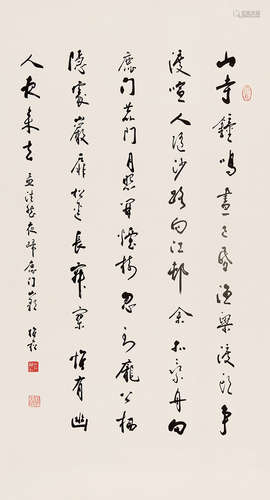 山寺鐘鳴晝已昏漁梁渡頭爭
渡喧人隨沙路向江邨余亦乘舟歸
鹿門鹿門月照開煙樹忽到龐公棲
隱處巖扉松徑長寂寥惟有幽
人夜來去 孟浩然夜歸鹿門歌